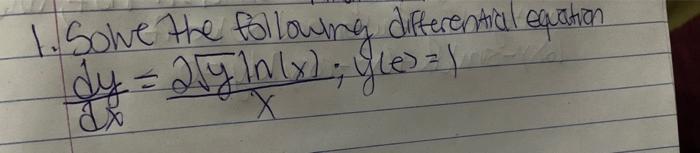 1. Solve the following differential equation
dy/dx = 2√y ln(x)/x ; y(e) = 1